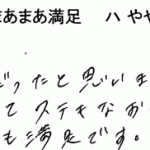 まあまあ満足 ハ やや
だったと思いま
てステキなお
も満足です。